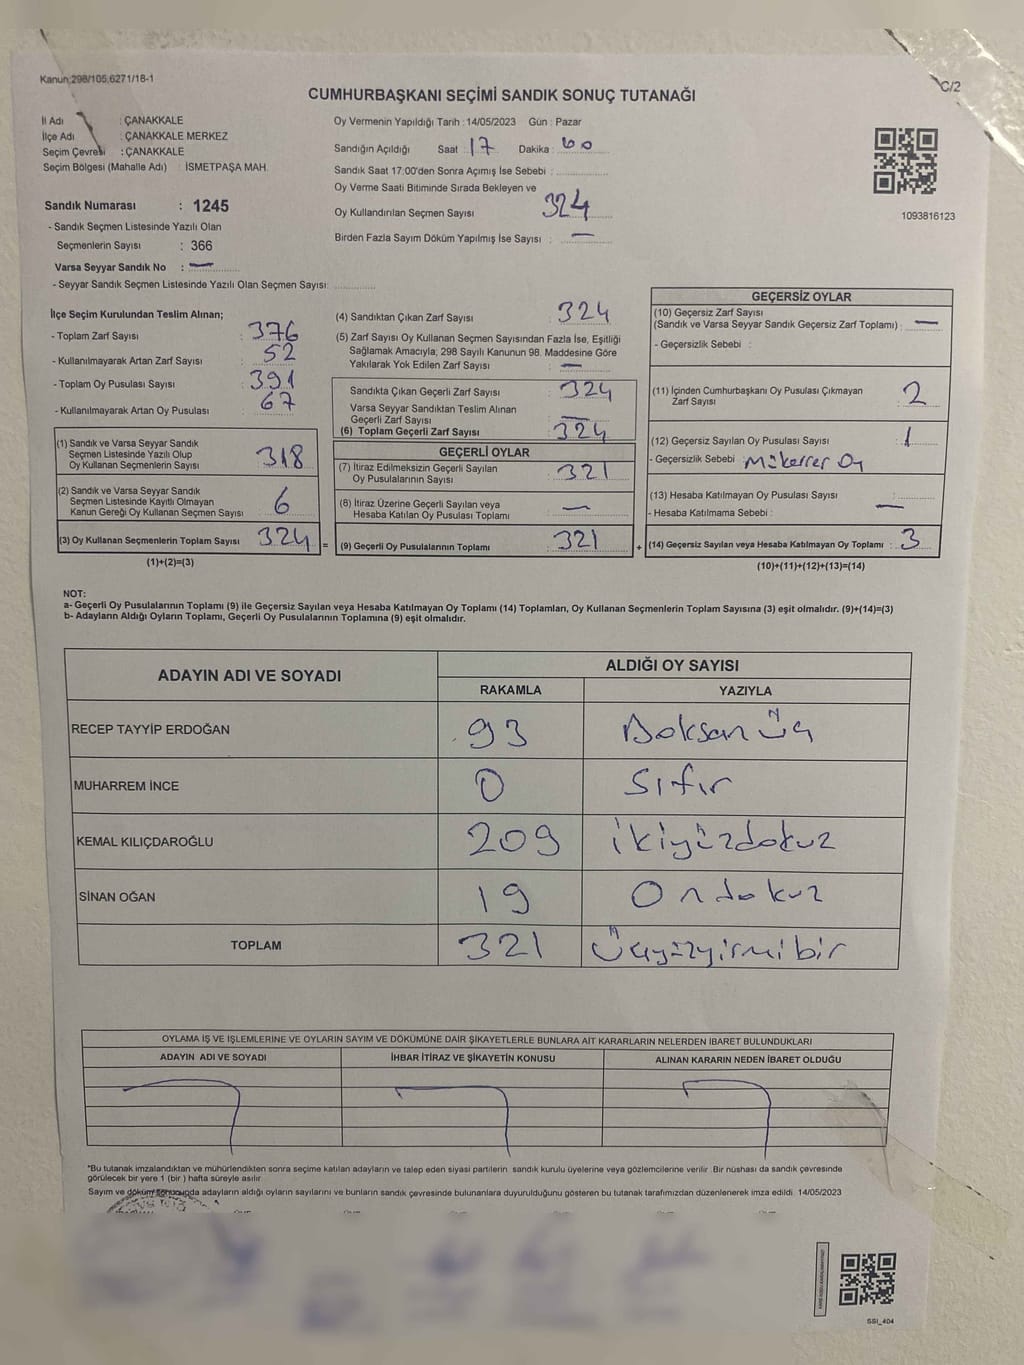 Kanun:298/105,6271/18-1
C/2
CUMHURBAŞKANI SEÇİMİ SANDIK SONUÇ TUTANAĞI
İl Adı : ÇANAKKALE
İlçe Adı : ÇANAKKALE MERKEZ
Seçim Çevresi : ÇANAKKALE
Seçim Bölgesi (Mahalle Adı) : İSMETPAŞA MAH.
Sandık Numarası : 1245
- Sandık Seçmen Listesinde Yazılı Olan
Seçmenlerin Sayısı : 366
Varsa Seyyar Sandık No : —
- Seyyar Sandık Seçmen Listesinde Yazılı Olan Seçmen Sayısı:
Oy Vermenin Yapıldığı Tarih : 14/05/2023 Gün : Pazar
Sandığın Açıldığı Saat : 17 Dakika : 00
Sandık Saat 17:00'den Sonra Açımış İse Sebebi :
Oy Verme Saati Bitiminde Sırada Bekleyen ve
Oy Kullandırılan Seçmen Sayısı 324
Birden Fazla Sayım Döküm Yapılmış İse Sayısı : —
1093816123
İlçe Seçim Kurulundan Teslim Alınan;
- Toplam Zarf Sayısı : 376
- Kullanılmayarak Artan Zarf Sayısı : 52
- Toplam Oy Pusulası Sayısı : 391
- Kullanılmayarak Artan Oy Pusulası : 67
(1) Sandık ve Varsa Seyyar Sandık
Seçmen Listesinde Yazılı Olup
Oy Kullanan Seçmenlerin Sayısı : 318
(2) Sandık ve Varsa Seyyar Sandık
Seçmen Listesinde Kayıtlı Olmayan
Kanun Gereği Oy Kullanan Seçmen Sayısı : 6
(3) Oy Kullanan Seçmenlerin Toplam Sayısı : 324 =
(1)+(2)=(3)
(4) Sandıktan Çıkan Zarf Sayısı : 324
(5) Zarf Sayısı Oy Kullanan Seçmen Sayısından Fazla İse, Eşitliği
Sağlamak Amacıyla; 298 Sayılı Kanunun 98. Maddesine Göre
Yakılarak Yok Edilen Zarf Sayısı : —
Sandıkta Çıkan Geçerli Zarf Sayısı : 324
Varsa Seyyar Sandıktan Teslim Alınan
Geçerli Zarf Sayısı : —
(6) Toplam Geçerli Zarf Sayısı : 324
GEÇERLİ OYLAR
(7) İtiraz Edilmeksizin Geçerli Sayılan
Oy Pusulalarının Sayısı : 321
(8) İtiraz Üzerine Geçerli Sayılan veya
Hesaba Katılan Oy Pusulası Toplamı : —
(9) Geçerli Oy Pusulalarının Toplamı : 321 +
GEÇERSİZ OYLAR
(10) Geçersiz Zarf Sayısı
(Sandık ve Varsa Seyyar Sandık Geçersiz Zarf Toplamı) : —
- Geçersizlik Sebebi :
(11) İçinden Cumhurbaşkanı Oy Pusulası Çıkmayan
Zarf Sayısı : 2
(12) Geçersiz Sayılan Oy Pusulası Sayısı : 1
- Geçersizlik Sebebi : Mükerrer Oy
(13) Hesaba Katılmayan Oy Pusulası Sayısı :
- Hesaba Katılmama Sebebi : —
(14) Geçersiz Sayılan veya Hesaba Katılmayan Oy Toplamı : 3
(10)+(11)+(12)+(13)=(14)
NOT:
a- Geçerli Oy Pusulalarının Toplamı (9) ile Geçersiz Sayılan veya Hesaba Katılmayan Oy Toplamı (14) Toplamları, Oy Kullanan Seçmenlerin Toplam Sayısına (3) eşit olmalıdır. (9)+(14)=(3)
b- Adayların Aldığı Oyların Toplamı, Geçerli Oy Pusulalarının Toplamına (9) eşit olmalıdır.
ADAYIN ADI VE SOYADI ALDIĞI OY SAYISI
RAKAMLA YAZIYLA
RECEP TAYYİP ERDOĞAN 93 Doksan üç
MUHARREM İNCE 0 Sıfır
KEMAL KILIÇDAROĞLU 209 ikiyüzdokuz
SİNAN OĞAN 19 Ondokuz
TOPLAM 321 Üçyüzyirmibir
OYLAMA İŞ VE İŞLEMLERİNE VE OYLARIN SAYIM VE DÖKÜMÜNE DAİR ŞİKAYETLERLE BUNLARA AİT KARARLARIN NELERDEN İBARET BULUNDUKLARI
ADAYIN ADI VE SOYADI İHBAR İTİRAZ VE ŞİKAYETİN KONUSU ALINAN KARARIN NEDEN İBARET OLDUĞU
*Bu tutanak imzalandıktan ve mühürlendikten sonra seçime katılan adayların ve talep eden siyasi partilerin sandık kurulu üyelerine veya gözlemcilerine verilir. Bir nüshası da sandık çevresinde
görülecek bir yere 1 (bir ) hafta süreyle asılır.
Sayım ve döküm sonucunda adayların aldığı oyların sayılarını ve bunların sandık çevresinde bulunanlara duyurulduğunu gösteren bu tutanak tarafımızdan düzenlenerek imza edildi. 14/05/2023
SSI_404